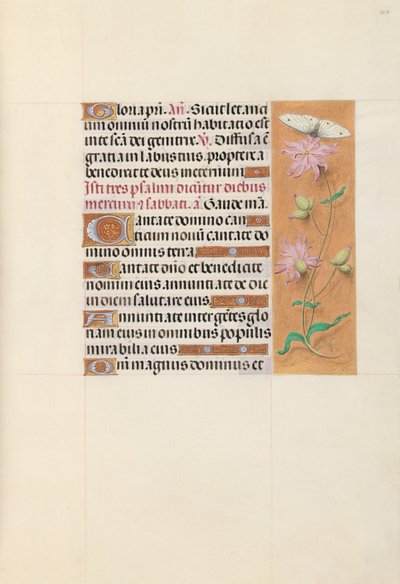 Gloria pri. Añ. Sicut letanci
um omniū nostrū habitacio est
in te scā dei genitrix. ℣. Diffusa ē
gratia in labiis tuis. propterea
benedixit te deus in eternum
Isti tres psalmi dicūtur diebus
mercurii ⁊ sabbati. añ. Gaude m̄a.
Cantate domino can
ticum nouū cantate do
mino omnis terra.
Cantate dño et benedicite
nomini eius annuntiate de die
in diem salutare eius.
Annuntiate inter gētes glo
riam eius in omnibus populis
mirabilia eius.
Qm̄ magnus dominus et